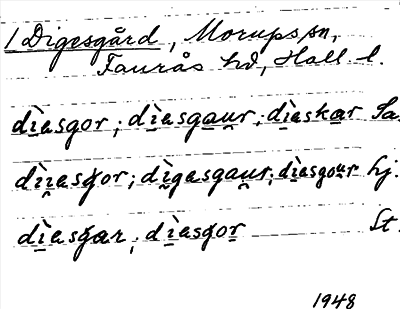 1 Digesgård, Morups sn,
Faurås hd, Hall. l.
dìasgor; dìasgau̯r; dìaskar Sa.
dìi̯asgor; dìgasgau̯r; dìasgou̯r Hj.
dìasgar; dìasgor St.
1948